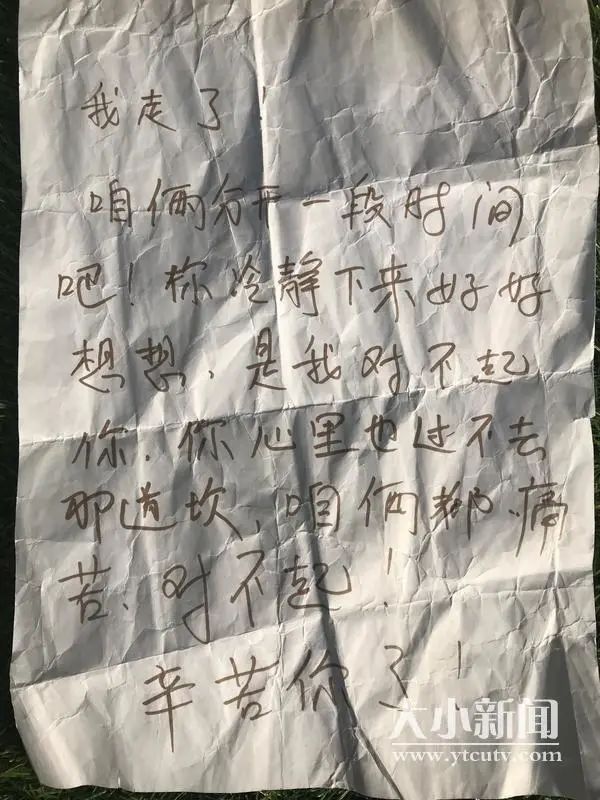 我走了！
咱俩分开一段时间
吧！你冷静下来好好
想想、是我对不起
你、你心里也过不去
那道坎、咱俩都痛
苦、对不起！
辛苦你了！
大小新闻
www.ytcutv.com